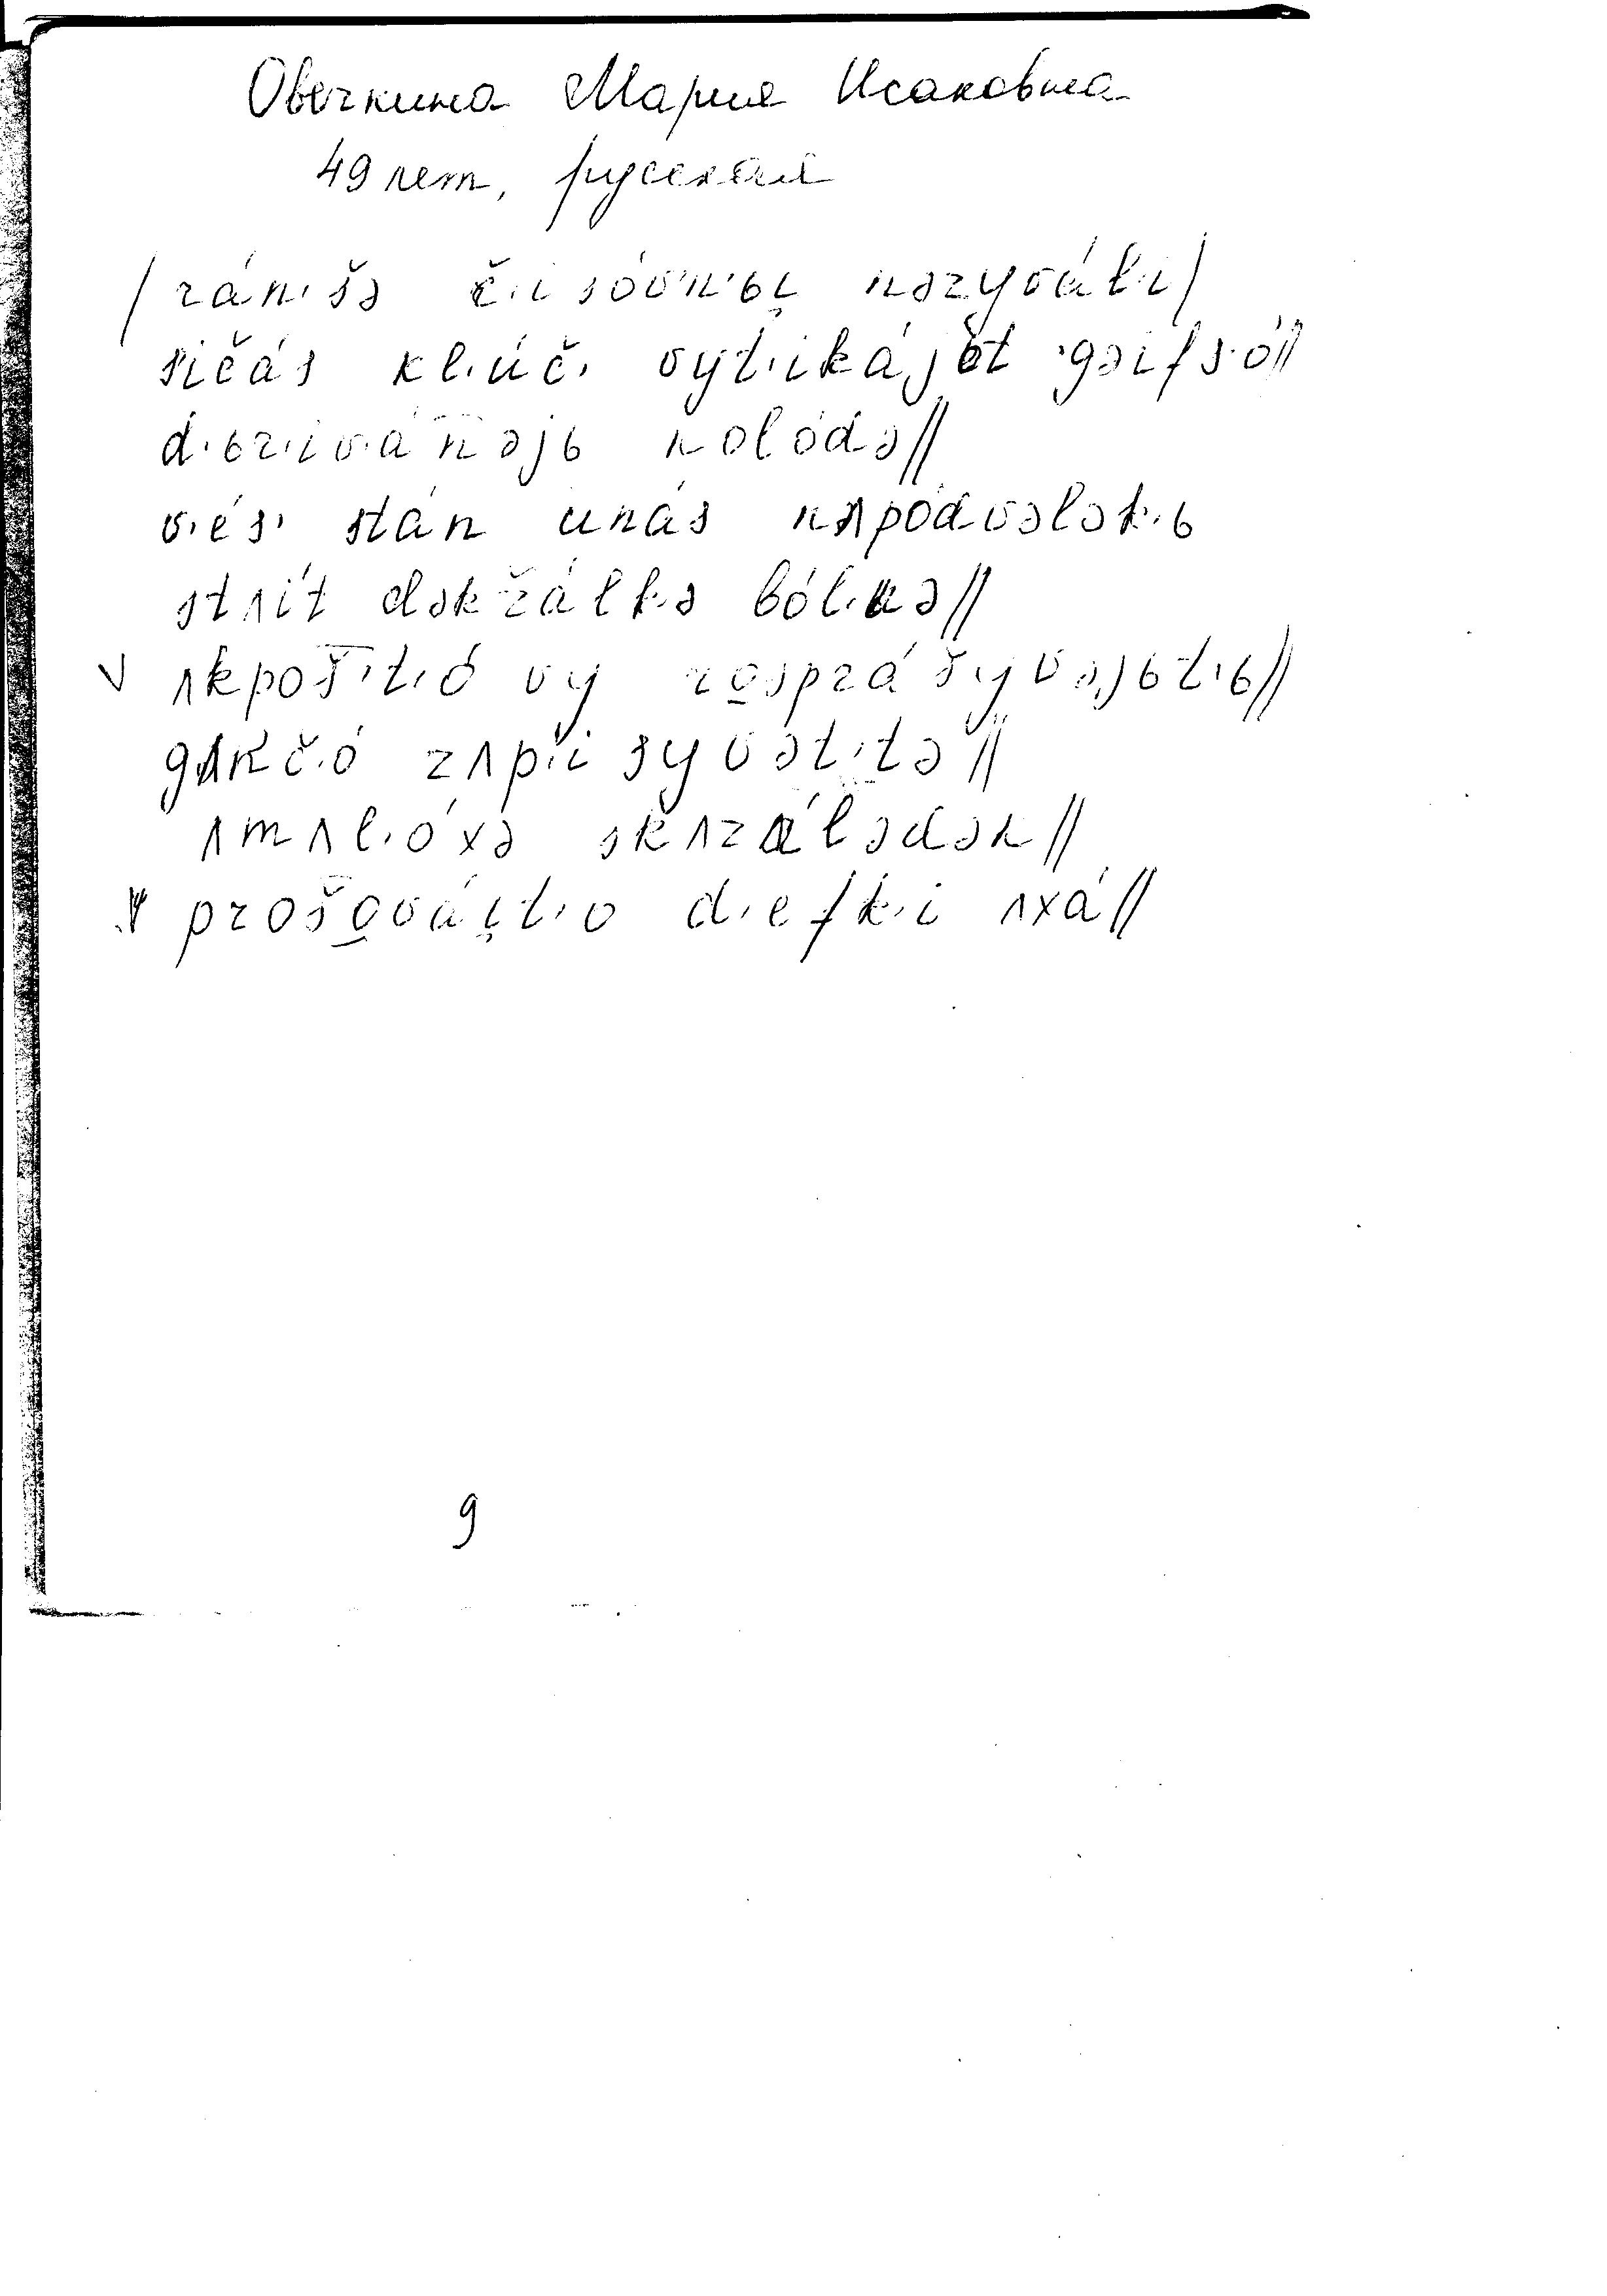 Овечкина Мария Исаковна
49 лет, русская
/rán·šə č·isóv'n'ьi̯ nəzyvál'i/
s'ičás kl·úč· vyt·ikájət gəifs·ó//
d·ьr·iv·ánəjь kolódə//
v·és· stán unás nʌpódvələk·ь
stʌít dəkžálkə ból·nə//
ʌkpoš·t·ó vy rosprášyvəjьt·ь//
gʌkč·ó zʌp·isyvət·tə//
ʌmʌl·óxə skʌzálədək//
prošová̯it·o d·efk·i ʌxá//
9